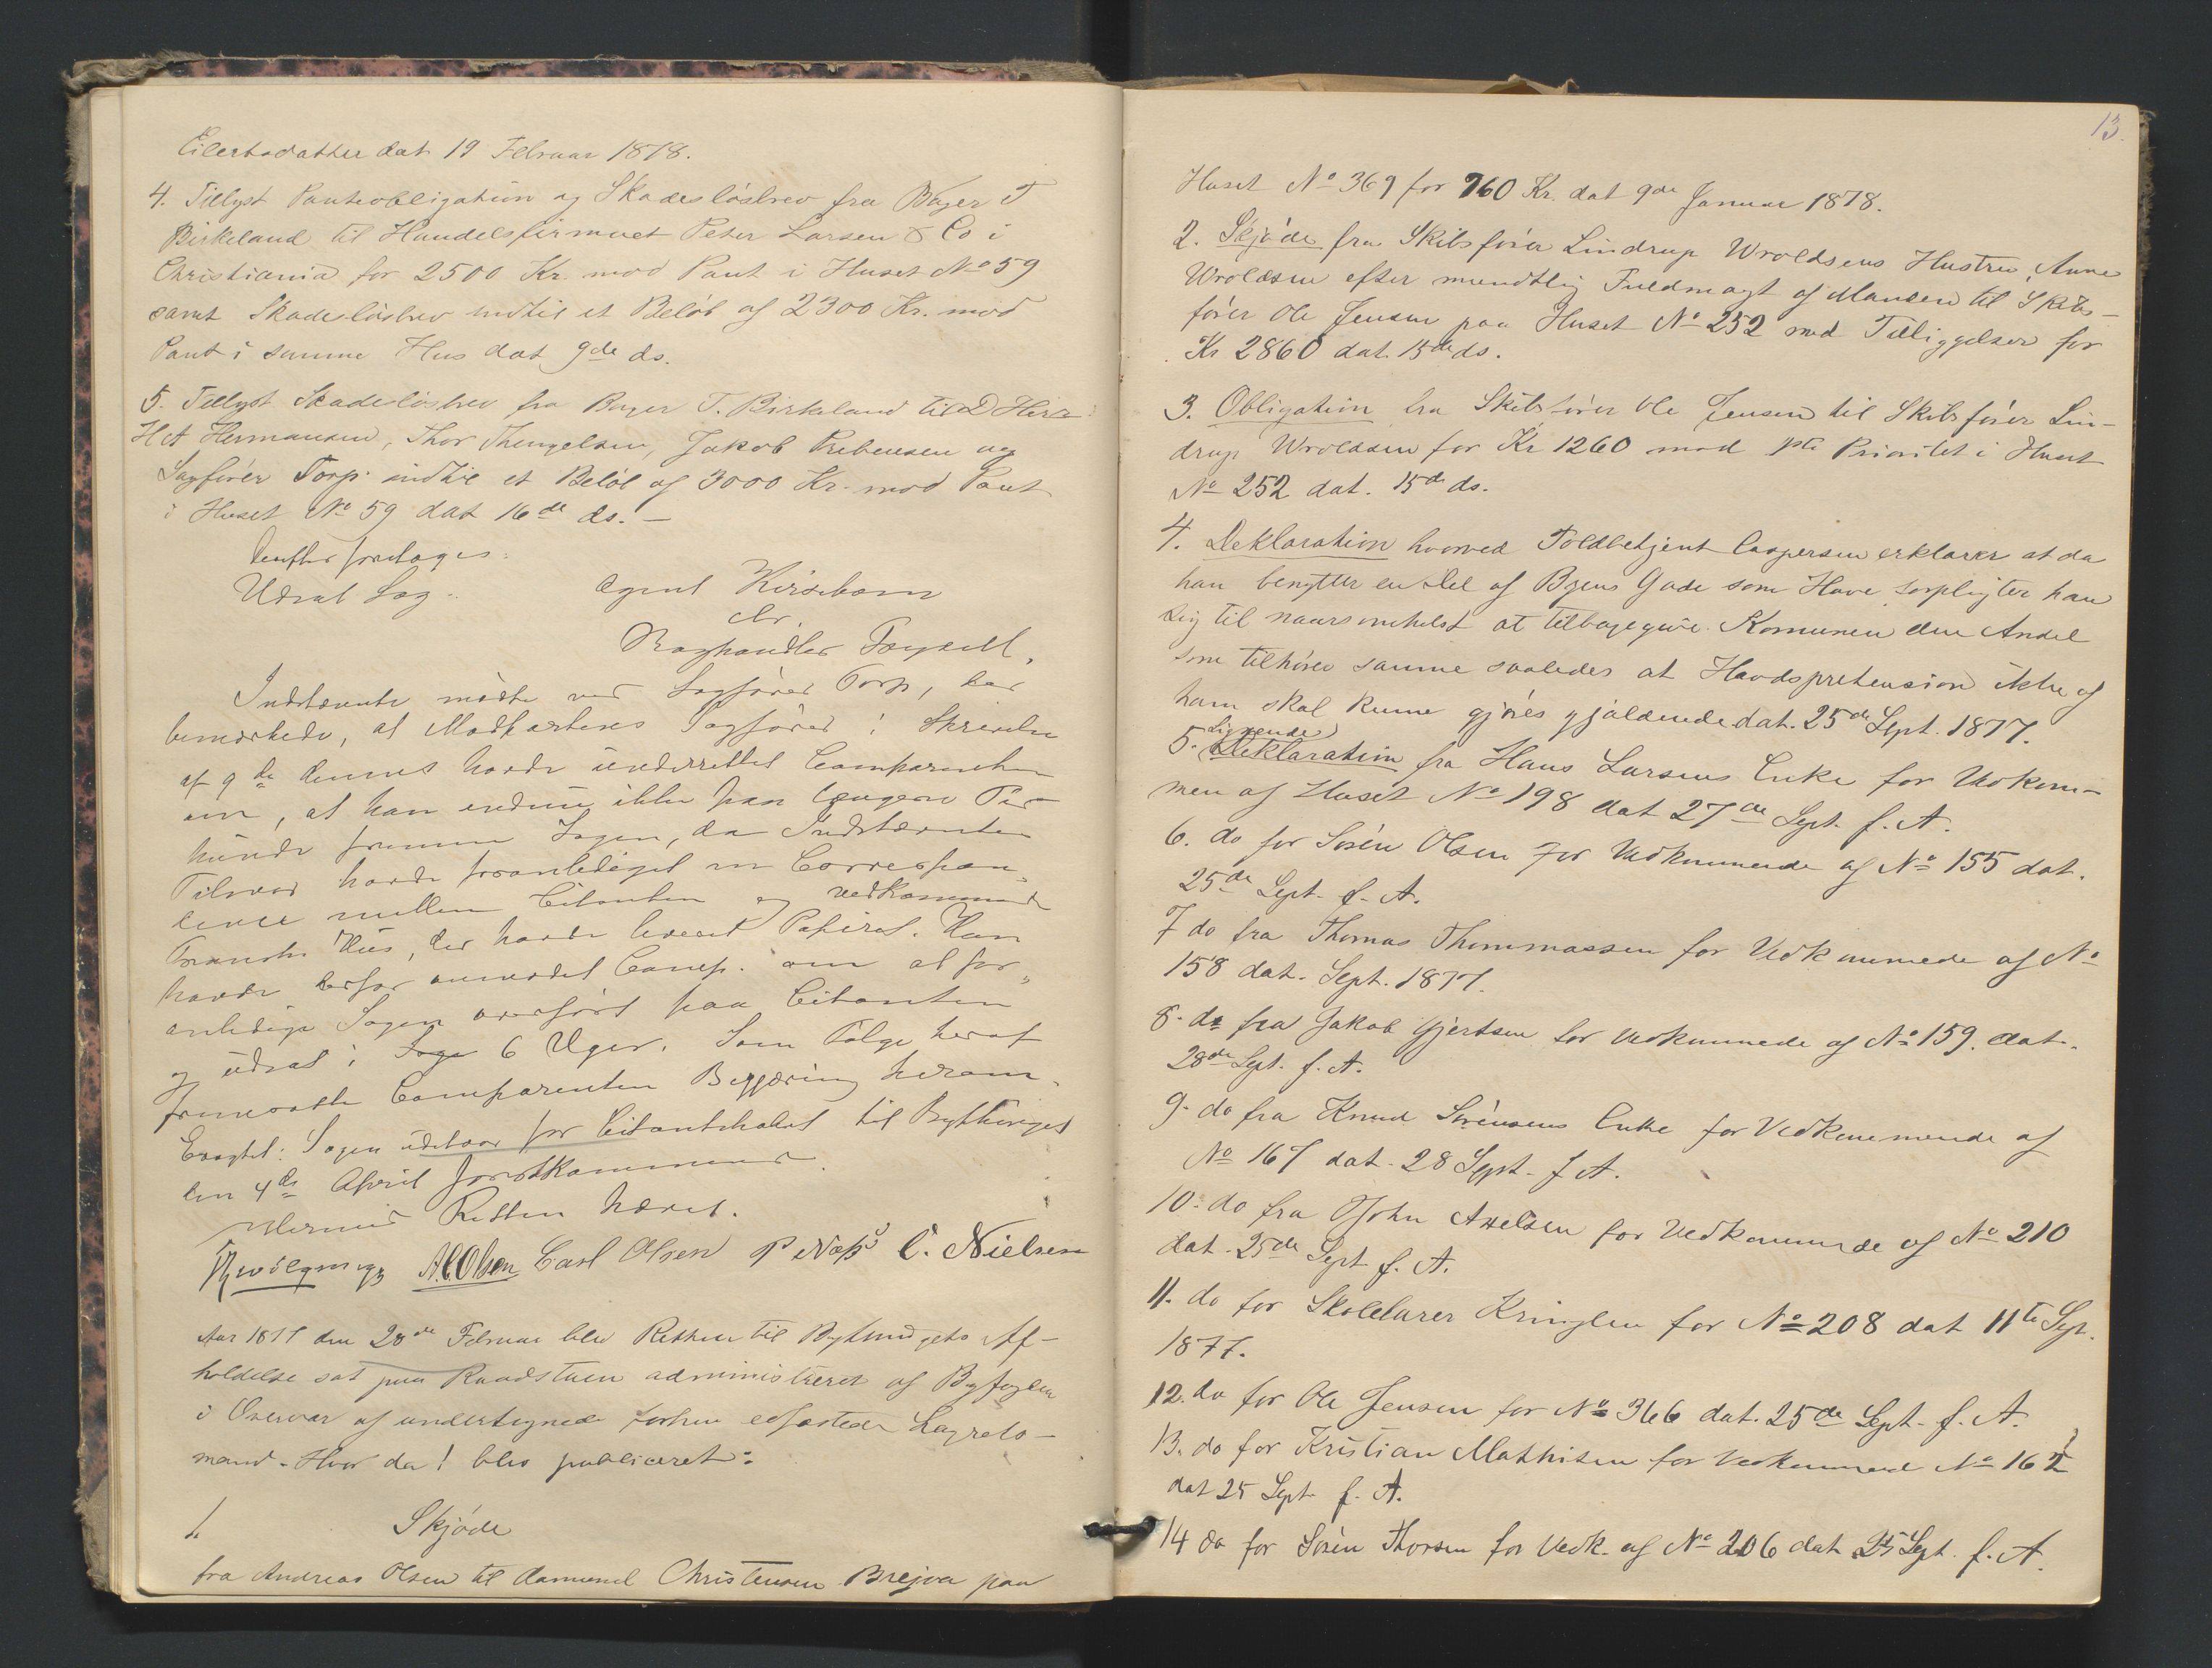 Eilertsdatter dat 19 Februar 1878.
4. Tillyst Panteobligation og Skadesløsbrev fra Bager T
Birkeland til Handelsfirmaet Peter Larsen & Co i
Christiania for 2500 Kr. mod Pant i Huset No 59
samt Skadesløsbrev indtil et Beløb af 2300 Kr. mod
Pant i samme Hus dat 9de ds.
5. Tillyst Skadesløsbrev fra Bager T. Birkeland til D Hrr
H A Hermansen, Thor Thengelsen, Jakob Prebensen og
Sagfører Torp indtil et Beløb af 3000 Kr. mod Pant
i Huset No 59 dat 16de ds. —
Derefter foretages:
Udsat Sag:
Agent Kirsebom
ctr.
Indstævnte mødte ved Sagfører Torp, der
bemærkede, at Modpartens Sagfører i Skrivelse
af 9de dennes havde underrettet Comparenten
om, at han endnu ikke paa længere Tid
kunde fremme Sagen, da Indstævntes
Tilsvar havde foranlediget en Correspon„
dence mellem Citanten og vedkommende
Franske Hus, der havde leveret Papiret. Han
havde derfor anmodet Comp. om at for„
anledige Sagen overført paa Citanten
og udsat i Sage 6 Uger. Som Følge heraf
fremsatte Comparenten Begjæring herom.
Eragtet: Sagen udsattes for Citantskabet til Bythinget
den 4de April førstkommende.
Dermed Retten hævet.
A.C. Olsen Carl Olsen P Næss C. Nielsen
Aar 1877 den 28de Februar blev Retten til Bythingets Af-
holdelse sat paa Raadstuen administreret af Byfogden
i Overvær af undertegnede forhen edfæstede Lagretes-
mænd. Hvor da! blev publiceret:
1. Skjøde
fra Andreas Olsen til Aamund Christensen Brejva paa
13.
Huset No 369 for 760 Kr. dat 9de Januar 1878.
2. Skjøde fra Skibsfører Lindrup Wroldsens Hustru, Anne
Wroldsen efter mundtlig Fuldmagt af Manden til Skibs-
fører Ole Jensen paa Huset No 252 med Tilliggelser for
Kr 2860 dat 15de ds.
3. Obligation fra Skibsfører Ole Jensen til Skibsfører Lin-
drup Wroldsen for Kr 1260 mod 1ste Prioritet i Huset
No 252 dat. 15de ds.
4. Deklaration hvorved Toldbetjent Caspersen erklærer at da
han benytter en Del af Byens Gade som Have, forpligter han
sig til naarsomhelst at tilbagegive Komunen den Andel
som tilhører samme saaledes at Hævdsprætension ikke af
ham skal kunne gjøres gjældende dat. 25de Sept. 1877.
5. Lignende Deklaration fra Hans Larsens Enke for Vedkom-
men af Huset No 198 dat 27de Sept. f. A.
6. do for Søren Olsen for Vedkommende af No 155 dat.
25de Sept. f. A.
7 do fra Thomas Thommassen for Vedkommede af No
158 dat. Sept. 1877.
8. do fra Jakob Gjertsen for Vedkommede af No 159. dat.
28de Sept. f. A.
9. do fra Knud Sørensens Enke for Vedkommende af
No 167 dat. 28 Sept. f A.
10. do fra John Axelsen for Vedkommende af No 210
dat. 25de Sept f. A.
11. do for Skolelærer Kringlen for No 208 dat 11te Sept.
1877.
12. do for Ole Jensen for No 366 dat. 25de Sept. f. A.
13. do for Kristian Mathisen for Vedkommend No 162
dat 25 Sept f. A.
14 do for Søren Thorsen for Vedk. af No 206 dat 25 Sept. f. A.